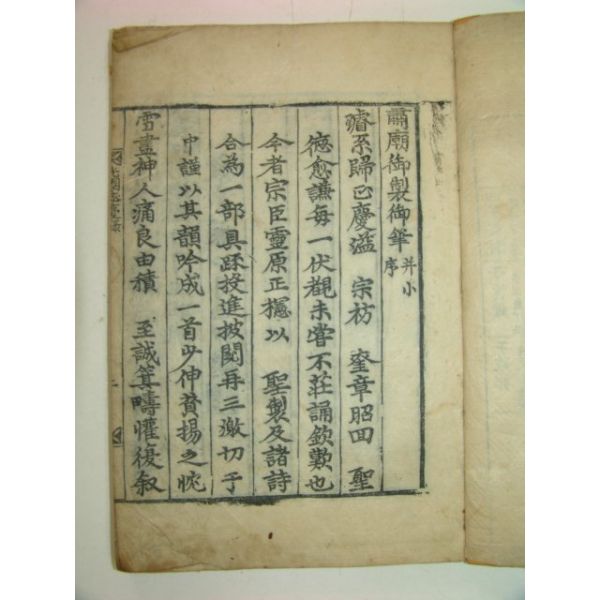 肅廟御製御筆 并小序
璿系歸正慶溢 宗祊 奎章昭回 聖
德愈謙每一伏覩未嘗不莊誦欽歎也
今者宗臣靈原正櫶以 聖製及諸詩
合為一部具疏投進披閱再三激切于
中謹以其韻吟成一首少伸贊揚之忱
雪盡神人痛良由積 至誠箕疇懽復叙